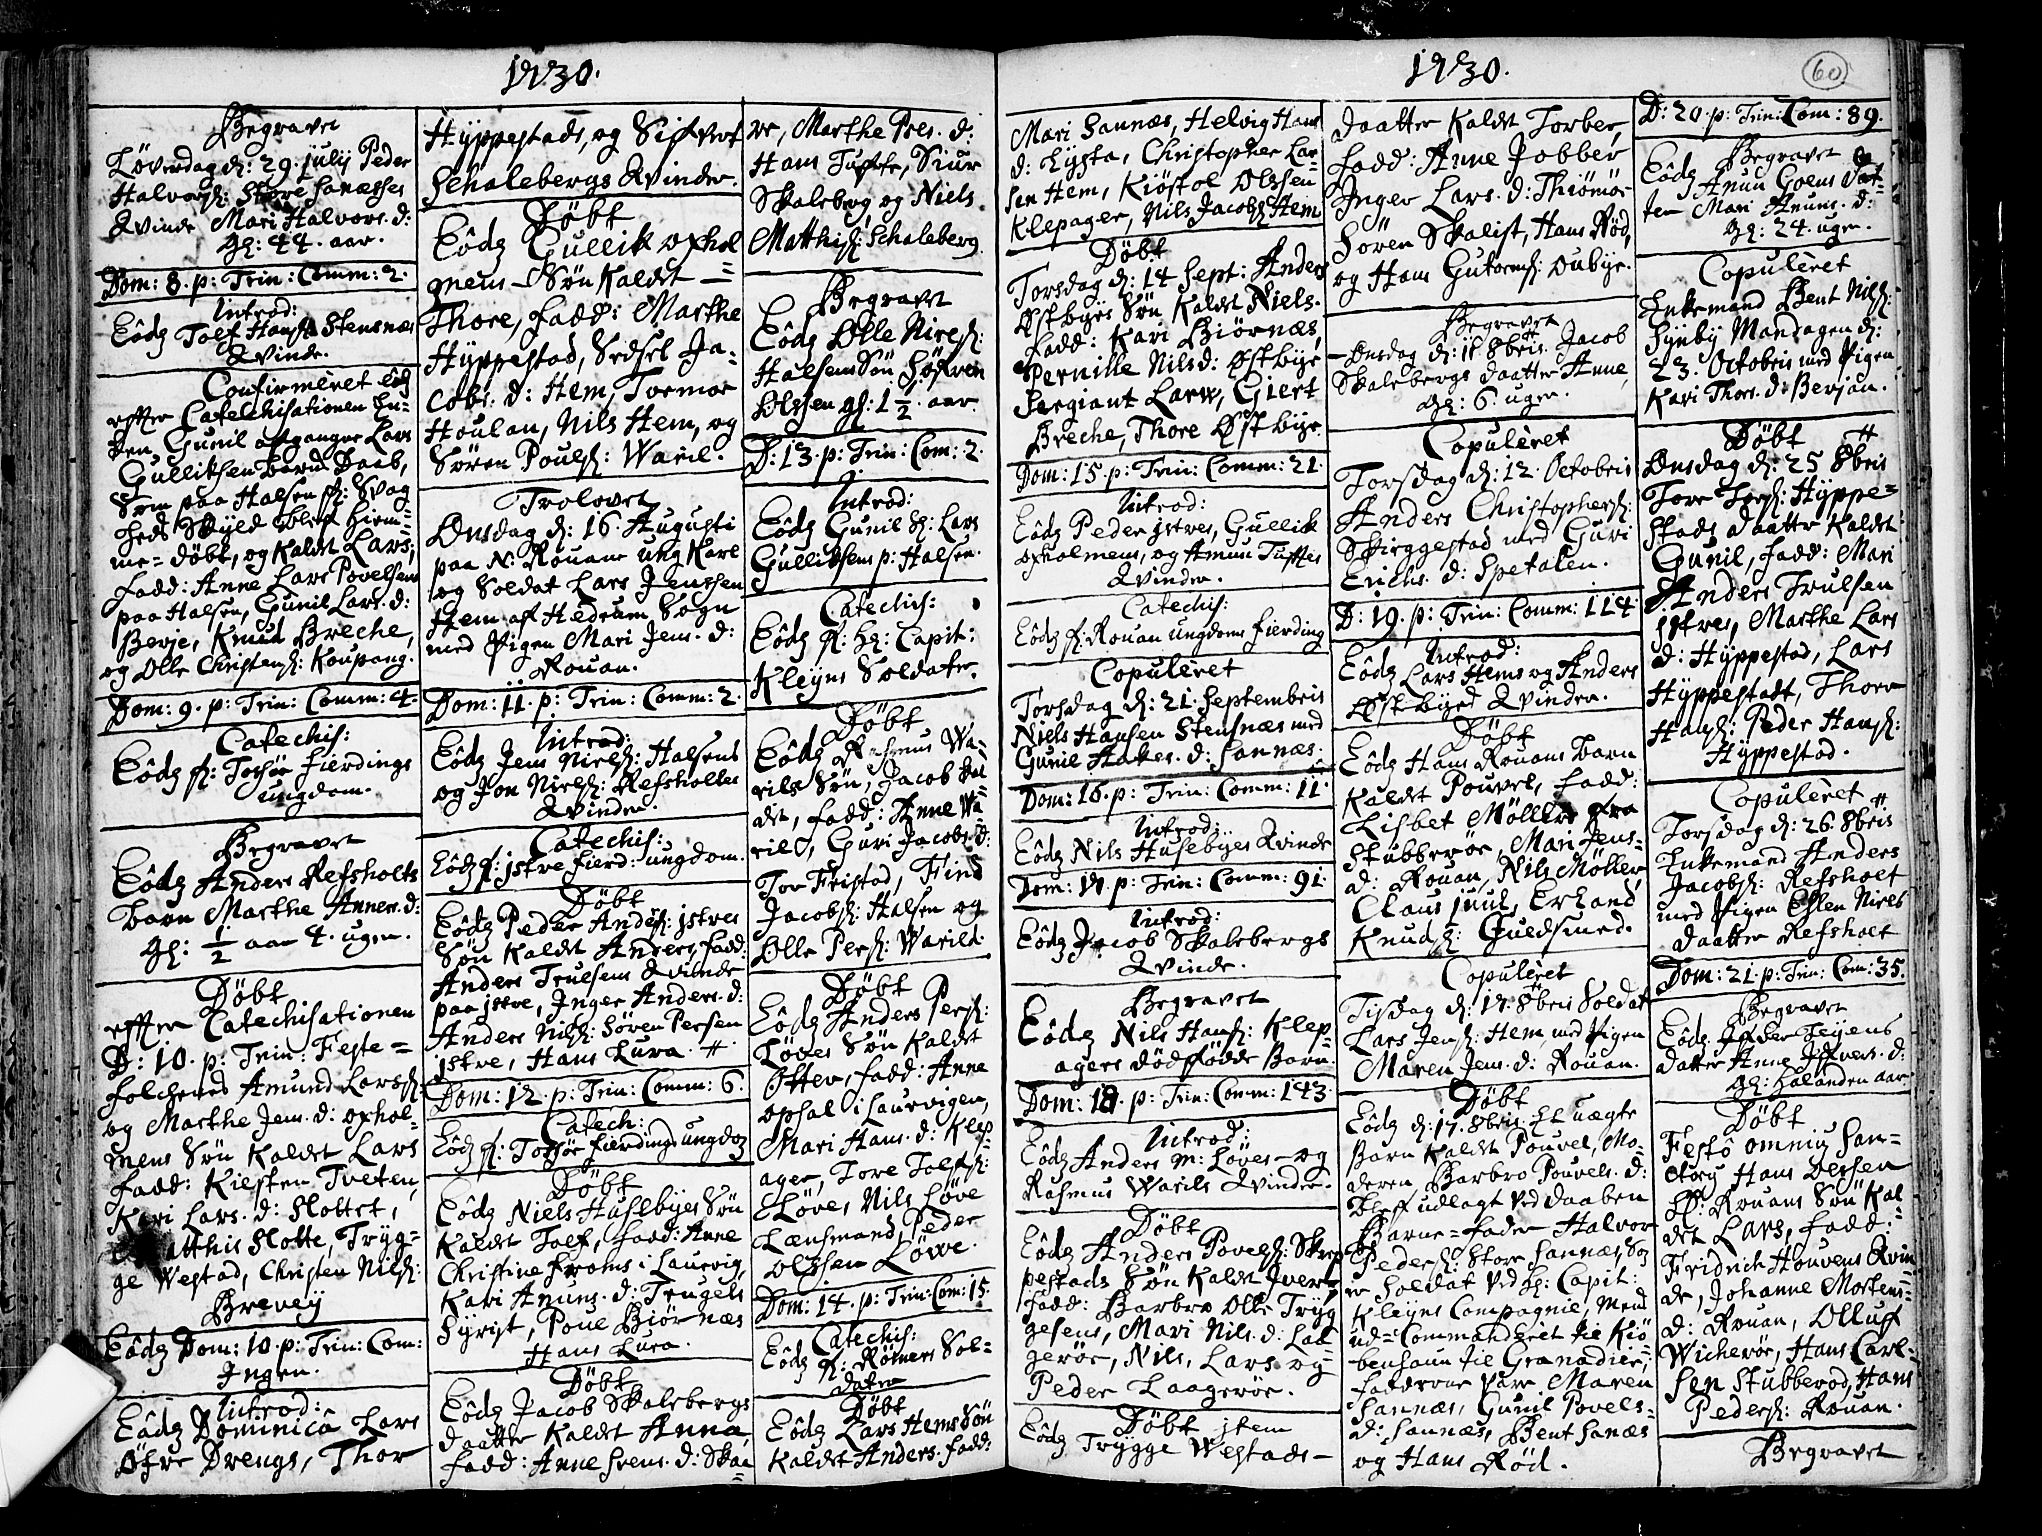 1730.
Begravet
Løverdag d: 29. julij Peder
Halvors: Store Sanæsses
Qvinde Mari Halvors. d:
gl: 44. aar.
Dom: 8. p: Trin: Comm: 2.
Introd:
Eôdz Tolf Hans: Stensnæs
Qvinde.
Confirmèret eôdz
effter Catechisationen En-
ken Gunil afgangne Lars
Gulliksen barns Daab,
Som paa Halsen for Svag
heds Skyld blef hiem-
me-døbt, og kaldt Lars,
fadd: Anne Lars Povelsens
paa Halsen, Gunil Lars. d:
Berje, Knud Breche,
og Olle Christens: Koupang.
Dom: 9. p: Trin: Comm: 4.
Catechis:
Eôdz f: Torsør fierdings
ungdom.
Begravet
Eôdz Anders Refsholts
barn Marthe Anders. d:
gl: 1/2 aar 4. ugen.
Døbt
effter Catechisationen
D: 10. p: Trin: Feste=
folchened Amund Lars:
og Marthe Jens. d: oxhol-
mens Søn kaldet Lars
fadd: Kiersten Tveten,
Kari Lars. d: Slottet,
Matthis Slotte, Tryg=
ge Westad, Christen Nils:
Brevej
Eôdz Dom: 10. p: Trin: Com:
Ingen.
Introd:
Eâdz Dominicâ Lars
Øfre Drengs, Thor
Hyppestads, og Sifvert
Schalebergs Qvinder.
Døbt
Eôdz Gullik oxhol
mens Søn kaldet =
Thore, fadd: Marthe
Hyppestad, Sedsel Ja-
cobs. d: Hem, Tormoe
Houlan, Nils Hem, og
Søren Pouls: Waril.
Trolovet
Onsdag d: 16. Augusti
paa N: Rouane ung Karl
og Soldat Lars Jenssen
Hem af Hedrum Sogn
med Pigen Mari Jens. d:
Rouan.
Dom: 11. p: Trin: Comm: 2.
Introd:
Eôdz Jens Niels: Halsens
og Jon Niels: Refsholtes
Qvinder.
Catechis:
Eôdz f: jstre fierd: ungdom.
Døbt
Eôdz Peder Anders: jstres
Søn kaldet Anders, fadd:
Anders Truelsens Qvinde
paa jstre, Inger Anders. d:
Anders Nils: Søren Persen
jstre, Hans Lura. #
Dom: 12. p: Trin: Comm: 6.
Catech:
Eôdz f: Torsør fierdings ungdoz
Døbt
Eôdz Niels Huslebyes Søn
kaldet Tolf, fadd: Anne
Christine Froms i Laurvig,
Kari Anuns. d: Trugels
Syrist, Poul Biørnæs
Hans Lura.
Døbt
Eôdz Jacob Skalebergs
daatter kaldet Anna,
fadd: Anne Frens. d: Skaa=
re, Marthe Pers. d:
Hans Tuffte, Siur
Skaleberg og Niels
Matthis: Schaleberg.
Begravet
Eôdz Olle Niels:
Halsens Søn Søfren
Olssen gl: 1 1/2. aar.
D: 13. p: Trin: Com: 2.
Introd:
Eôdz Gunil Sl: Lars
Gulliksens p: Halsen.
Catechis:
Eôdz f: Hr: Capit:
Kleyns Soldater.
Døbt
Eôdz Rasmus Wa-
rils Søn, Jacob kal
det, fadd: Anne Wa
ril, Guri Jacobs. d:
Tor Fristad, Find
Jacobs: Halsen og
Olle Pers: Warild.
Døbt
Eôdz Anders Pers:
Løves Søn kaldet
Otter, fadd: Anne
ophal i Laurvigen,
Mari Hans. d: Klep
ager, Tore Tolfs:
Løve, Nils Løve
Lænsmand, Peder
Olssen Løwe.
Dom: 14. p: Trin: Com: 15.
Catechis:
Eôdz f: Römers Sol-
dater
Døbt
Eôdz Lars Hems Søn
kaldet Anders. fadd:
1730.
60
Mari Sannæs, Helvig Hans
d: Lysta, Christopher Lar
sen Hem, Kiøstol Olssen
Klepager, Nils Jacobs: Hem
Døbt
Torsdag d: 14 Sept: Anders
Østbyes Søn kaldet Niels.
fadd: Kari Biørnæs,
Pernille Nils d: Østbye
Sergiant Larw, Giert
Breche, Thore Østbye.
Dom: 15. p: Trin: Comm: 21.
Introd:
Eôdz Peder jstres, Gullik
oxholmens, og Amun Tufftes
Qvinder.
Catechis:
Eôdz f: Rouan ungdoms fierding
Copulèret
Torsdag d: 21. Septembris
Niels Hansen Stensnæs med
Gunil Aakes. d: Sannæs.
Dom: 16. p: Trin: Comm: 11.
Introd:
Eôdz Nils Huslebyes Qvinde
Dom: 17. p: Trin: Comm: 91.
Introd:
Eôdz Jacob Skalebergs
Qvinde.
Begravet
Eôdz Nils Hans: Klep
agers dødfødde Barn.
Dom: 18. p: Trin: Comm: 143.
Introd:
Eôdz Anders m: Løves og
Rasmus Warils Qvinder.
Døbt
Eôdz Anders Povels: Skrep
pestads Søn kaldet Jver,
fadd: Barbro Olle Tryg
gesens, Mari Nils. d: Laa
gerøe, Nils, Lars og
Peder Laagerøe.
Døbt jtem
Eôdz Trygge Westads
daatter kaldet Torber,
fadd: Anne Jobber
Inger Lars. d: Thiømøe
Sören Skalist, Hans Rød,
og Hans Gutorms: Oubye.
Begravet
Onsdag d: 11 8bris Jacob
Skalebergs daatter Anne,
gl: 6. ugen.
Copulèret
Torsdag d: 12. Octobris
Anders Christophers:
Skirggestad med Guri
Erichs. d: Spetalen.
D: 19. p: Trin: Comm: 114.
Introd:
Eôdz Lars Hems og Anders
Østbyes Qvinder.
Døbt
Eôdz Hans Rouans barn
kaldet Pouvel, fadd:
Lisbet Møllers fra
Stubberøe, Mari Jens-
d: Rouan, Nils Møller,
Claus juul, Erland
Knuds: Guldsmed.
Copulèret
Tisdag d: 17. 8bris Soldat
Lars Jens: Hem, med Pigen
Maren Jens. d: Rouan.
Døbt
Eôdz d: 17. 8bris Et uægte
Barn kaldet Pouvel, Mo-
deren Barbro Pouvels. d:
Blef udlagt ved daaben
Barne=fader Halvor
Peders: Store Sannæs, Soz
er Soldat ved Hr: Capit:
Kleyns Compagnie, mend
ud=Commanderet til Kiö
benhaun til Granadier,
fadderne vare Maren
Sannæs, Gunil Povels-
d: Sannæs, Bent Sanæs
og Hans Rød.
D: 20. p: Trin: Com: 89.
Begravet
Eôdz Anun Goens Dat-
ter Mari Anuns. d:
gl: 24. ugen.
Copulèret
Enkemand Bent Nils:
Synby Mandagen d:
23. Octobris med Pigen
Kari Thors. d: Berjan.
Døbt #
Onsdag d: 25 8bris
Tore Tors: Hyppe=
stads daatter kaldet
Gunil, fadd: Mari
Anders Trulsen
jstres, Marthe Lars
d: Hyppestad, Lars
Hyppestadt, Thore
Hans: Peder Hans:
Hyppestad.
Copulèret #
Torsdag d: 26. 8bris
Enkemand Anders
Jacobs: Refsholt
med Pigen Ellen Niels
daatter Refsholt
Dom: 21. p: Trin: Com: 35.
Begravet
Eôdz Tejens
datter Anne d:
gl: halanden aar
Døbt
Festô omniũ San=
ctorũ Hans Olssen
Rouans Søn kal
det Lars, fadd:
Fridrich Houvens Qvin
de, Johanne Mortens=
d: Rouan, Olluf
Wicherøe, Hans Carl-
sen Stubberod, Hans
Peders: Rouan.
Begravet